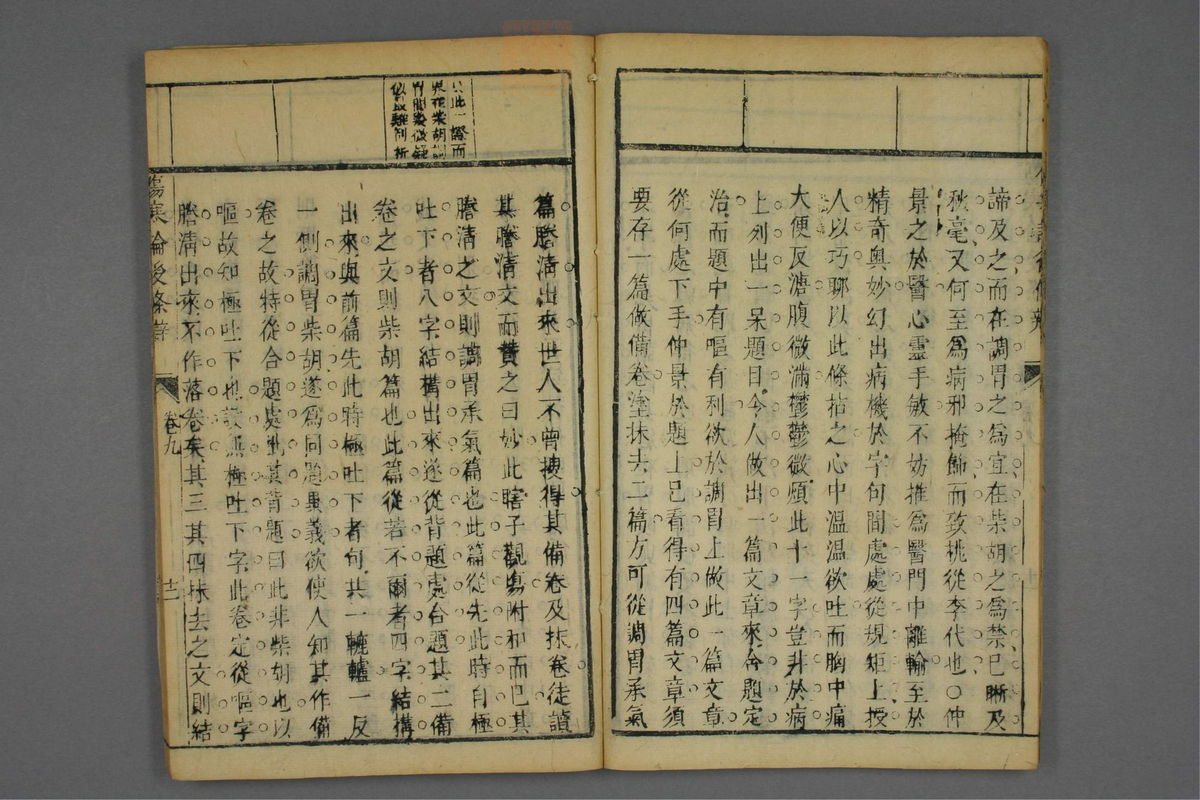 諦及之而在調胃之爲宜在柴胡之爲禁已晰及
秋毫又何至爲病邪掩飾而致桃從李代也○仲
景之於醫心靈手敏不妨推爲醫門中離輸至於
精奇奧妙幻出病機於字句間處處從規矩上授
人以巧聊以此條拈之心中温温欲吐而胸中痛
大便反溏腹微滿鬱鬱微煩此十一字豈非於病
上列出一呆題目今人做出一篇文章來合題定
治而題中有嘔有利欲於調胃上做此一篇文章
從何處下手仲景於題上已看得有四篇文章須
要存一篇做備卷塗抹去二篇方可從調胃承氣
此一證而
柴胡
篇謄清出來世人不曾搜得其備卷及抹卷徒讀
其謄清文而贊之曰妙此瞎子觀傷附和而已其
謄清之文則調胃承氣篇也此篇從先此時自極
吐下者八字結構出來遂從背題處合題其二備
卷之文則柴胡篇也此篇從若不爾者四字結構
出來與前篇先此時極吐下者句共一轆轤一反
一側調胃柴胡遂爲同題異義欲使人知其作備
卷之故特從合題處出其背題曰此非柴胡也以
嘔故知極吐下也設無極吐下字此卷定從嘔字
謄清出來不作落卷矣其三其四抹去之文則結
傷寒論後條辨
卷九
十二